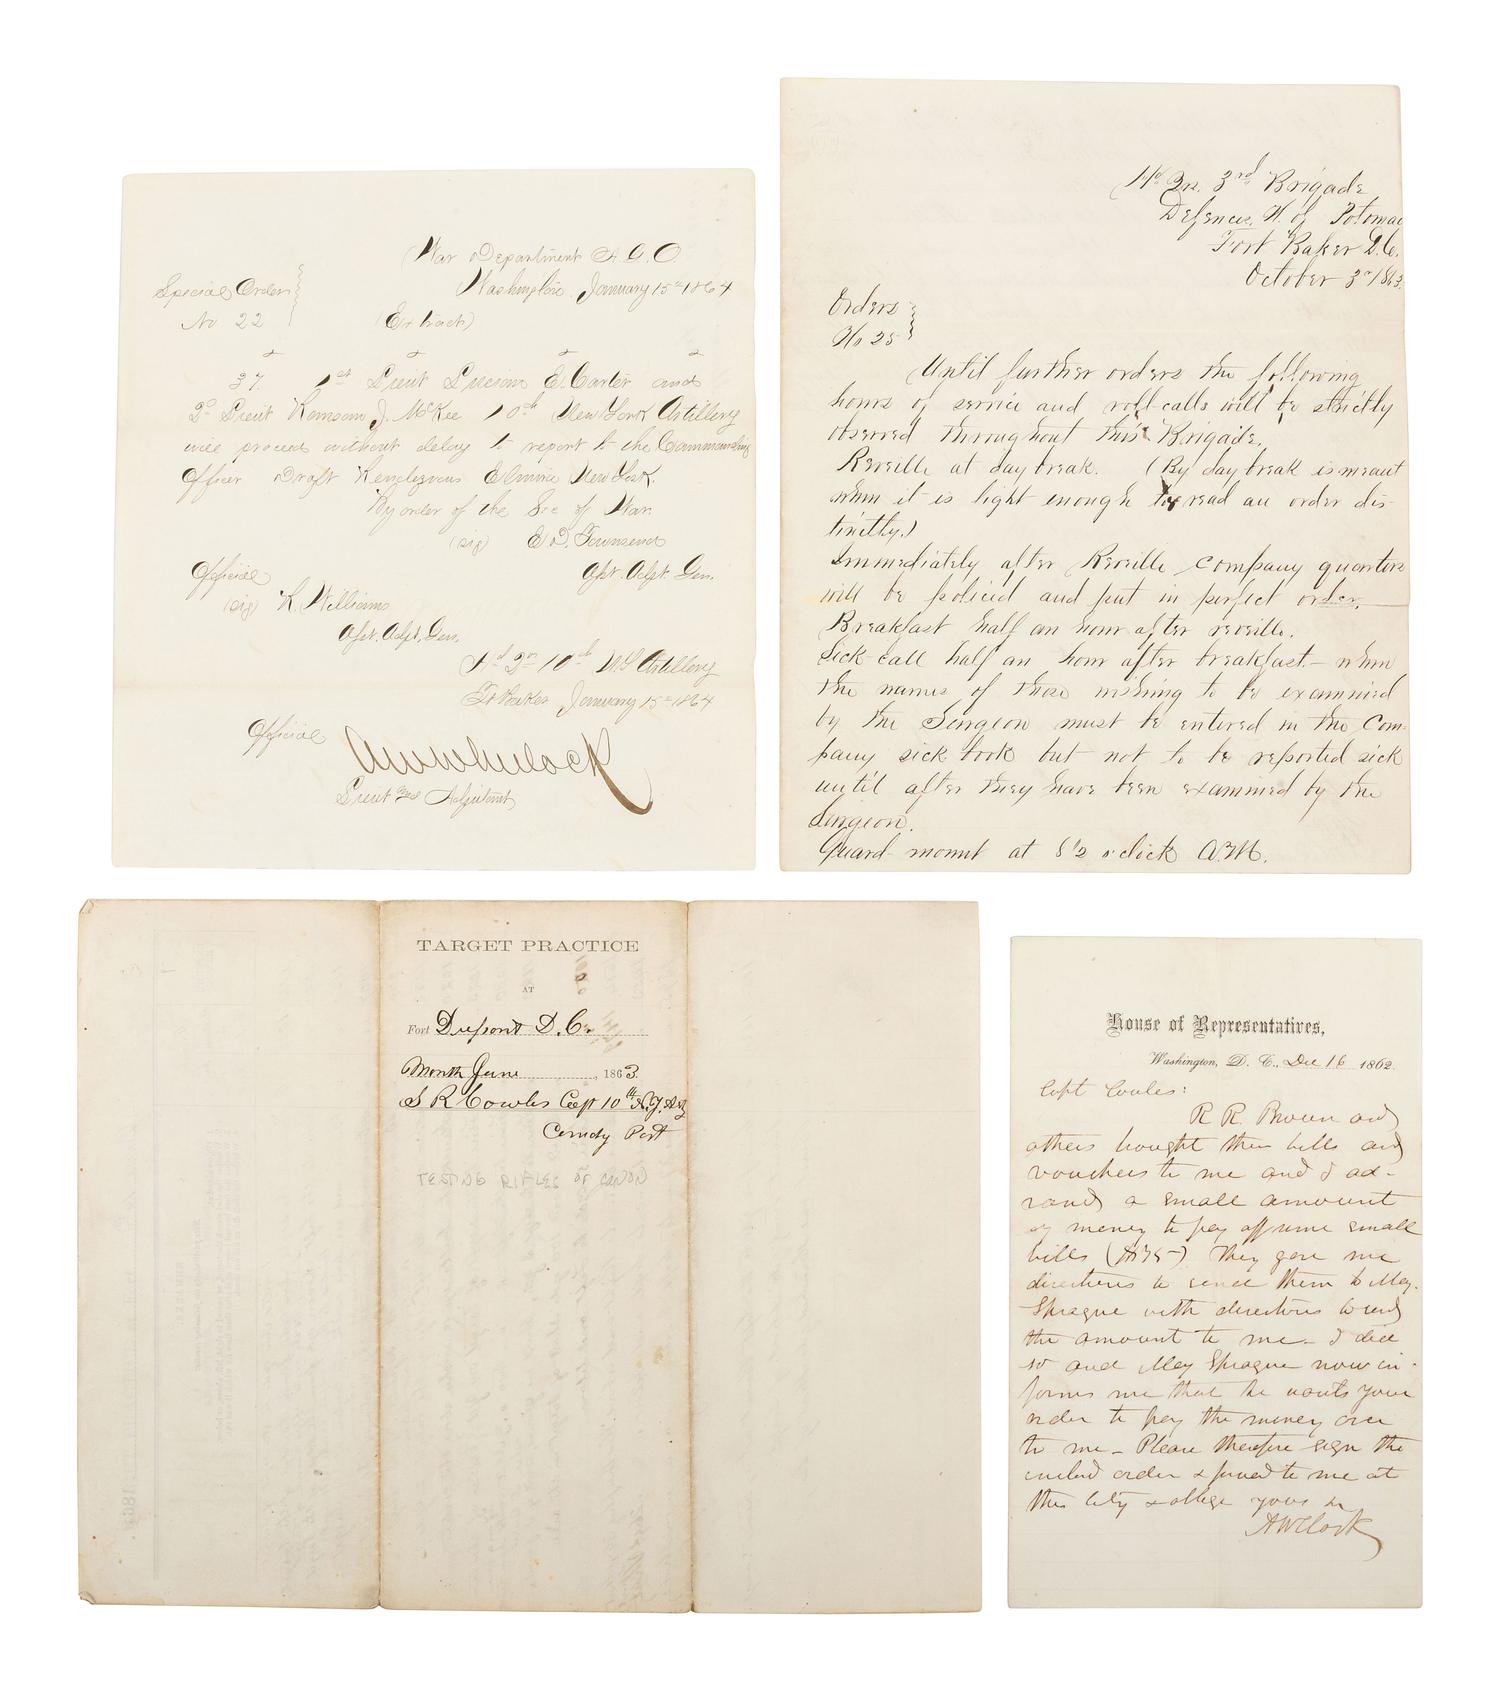 War Department A. G. O.
Washington January 15th 1864
Special Order
No 22
(Extract)
37. 1st Lieut E. Carter and
2d Lieut Ransom J. McKee 10th New York Artillery
will proceed without delay to report to the Commanding
Officer Draft Rendezvous Elmira New York.
By order of the Sec of War
(sig) E. D. Townsend
Asst. Adjt. Gen.
Official
(sig) R. Williams
Asst. Adjt. Gen.
Hd Qrs 10th NY Artillery
Ft Baker January 15th 1864
Official
Lieut and Adjutant
Hd Qrs. 3rd Brigade
Defences, N. of Potomac
Fort Baker D.C.
October 3rd 1863.
Orders
No 25
Until further orders the following
hours of service and roll-calls will be strictly
observed throughout this Brigade.
Reveille at day break. (By day break is meant
when it is light enough to read an order dis-
tinctly.)
Immediately after Reveille company quarters
will be policed and put in perfect order.
Breakfast half an hour after reveille.
Sick-call half an hour after breakfast. — when
the names of those wishing to be examined
by the Surgeon must be entered in the Com-
pany sick book but not to be reported sick
until after they have been examined by the
Surgeon.
Guard-mount at 8 1/2 o'clock A.M.
TARGET PRACTICE
AT
Fort Dupont D. C.
Month June, 1863.
S R Cowles Capt 10th N.Y. Art
Comdg Post
TESTING RIFLES OF CANON
House of Representatives,
Washington, D. C., Dec 16 1862.
Capt Cowles:
R. R. Brown and
others bought their bills and
vouchers to me and I ad-
vanced a small amount
of money to pay off some small
bills ($175-) They gave me
directions to send them to May.
Sprague with directions to send
the amount to me — I did
so and May Sprague now in-
forms me that he wants your
order to pay the money over
to me — Please therefore sign the
inclosed order & forward to me at
this City & oblige yours &c
A W Clark